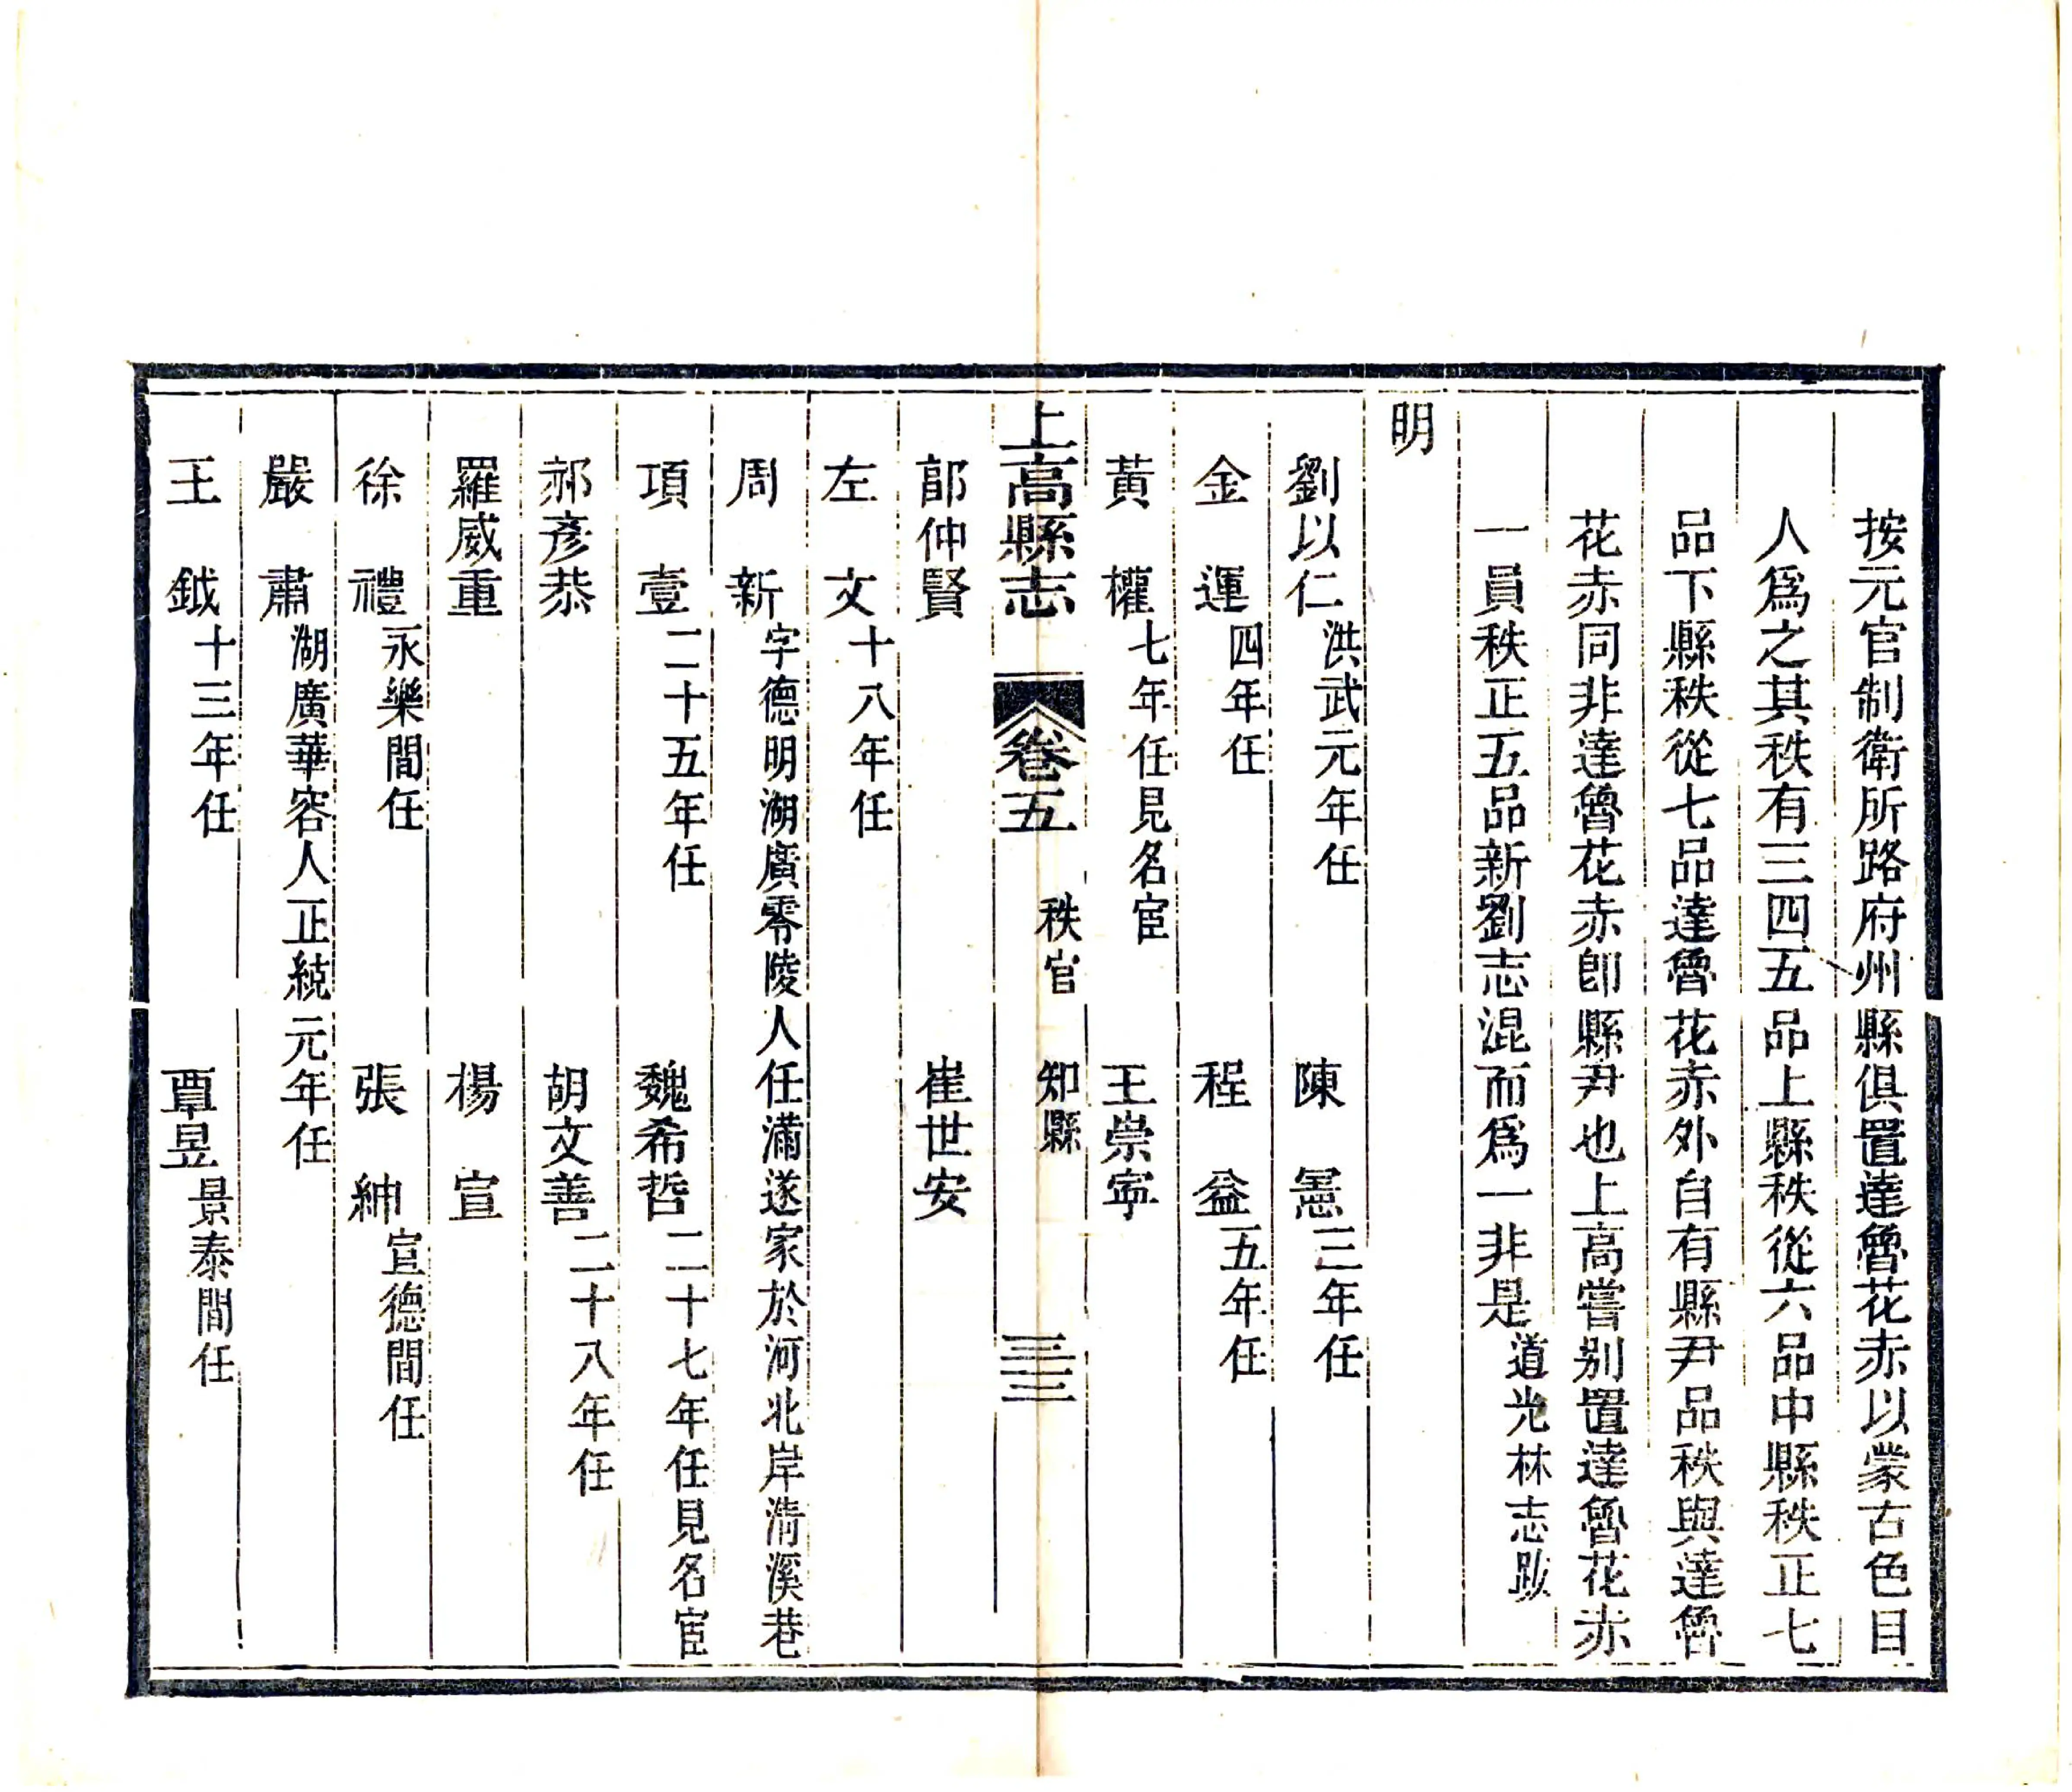 按元官制衛所路府州縣俱置達魯花赤以蒙古色目
人爲之其秩有三四五品上縣秩從六品中縣秩正七
品下縣秩從七品達魯花赤外自有縣尹品秩與達魯
花赤同非達魯花赤卽縣尹也上高嘗别置達魯花赤
一員秩正五品新劉志混而爲一非是道光林志跋
明
劉以仁洪武元年任 陳㥁三年任
金運四年任 程益五年任
黃權七年任見名宦 王崇寧
上高縣志 卷五 秩官 知縣 三三
郎仲賢 崔世安
左文十八年任
周新字德明湖廣零陵人任滿遂家於河北岸淸溪巷
項壹二十五年任 魏希哲二十七年任見名宦
郝彥恭 胡文善二十八年任
羅威重 楊宣
徐禮永樂間任 張紳宣德間任
嚴肅湖廣華容人正統元年任
王鉞十三年任 覃昱景泰間任